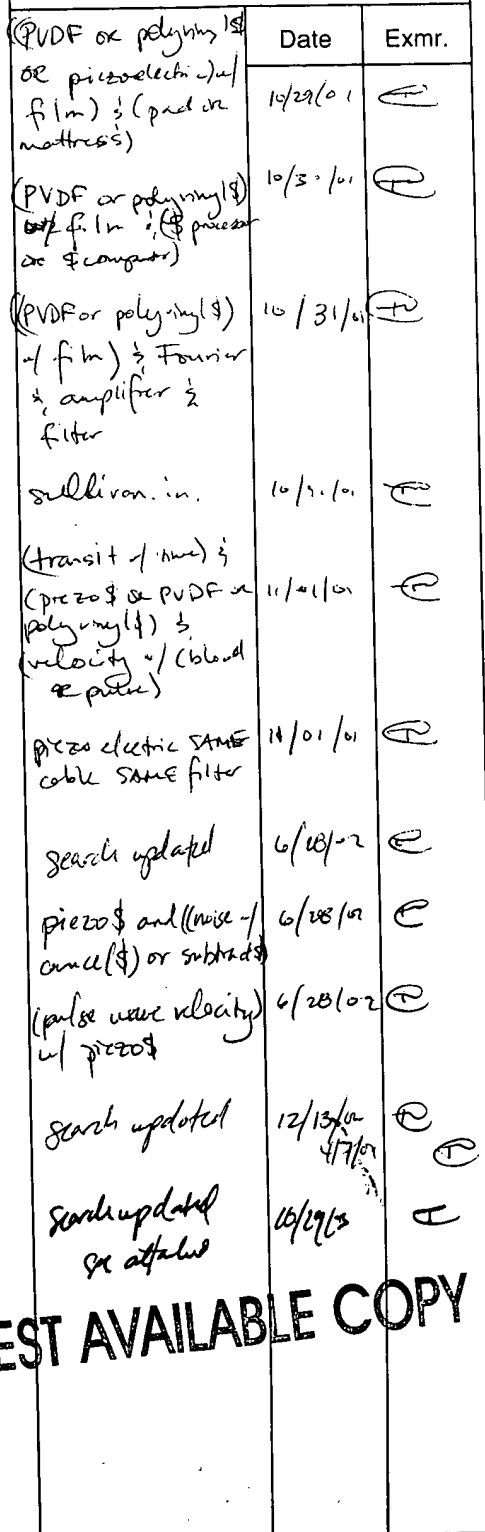 Date Exmr.
((PVDF or polyviny1$
or piezoelectric) w/
film) & (pad or
mattress) 10/29/01
(PVDF or polyvinyl$)
w/ film & ($processor
or $computer) 10/30/01
((PVDF or polyvinyl$) 10/31/01
w/ film) & Fourier
& amplifier &
filter
sullivan.in.
(transit w/ time) &
(piezo$ or PVDF or 11/01/01
polyvinyl$) &
(velocity w/ (blood
or pulse)
piezoelectric SAME 11/01/01
cable SAME filter
search updated 6/28/02
piezo$ and ((noise w/ 6/28/02
cancel($) or subtract$)
(pulse wave velocity) 6/28/02
w/ piezo$
search updated 12/13/02
search updated
see attached
EST AVAILABLE COPY